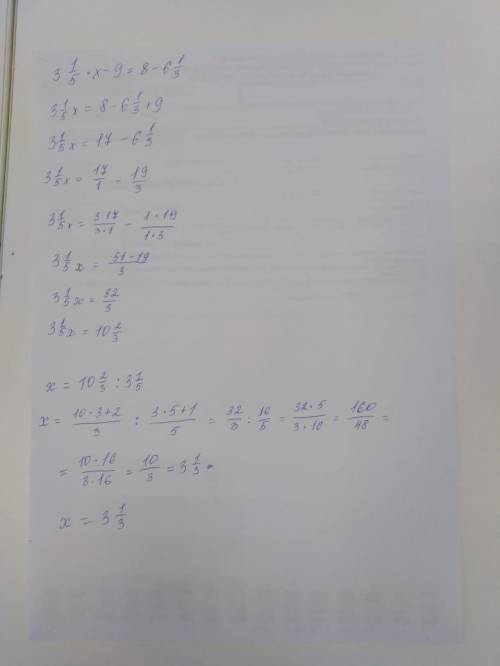 3 1/5 · x - 9 = 8 - 6 1/3
3 1/5 x = 8 - 6 1/3 + 9
3 1/5 x = 17 - 6 1/3
3 1/5 x = 17/1 - 19/3
3 1/5 x = 3·17/3·1 - 1·19/1·3
3 1/5 x = 51-19/3
3 1/5 x = 32/3
3 1/5 x = 10 2/3
x = 10 2/3 : 3 1/5
x = 10·3+2/3 : 3·5+1/5 = 32/3 : 16/5 = 32·5/3·16 = 160/48 =
= 10·16/3·16 = 10/3 = 3 1/3
x = 3 1/3